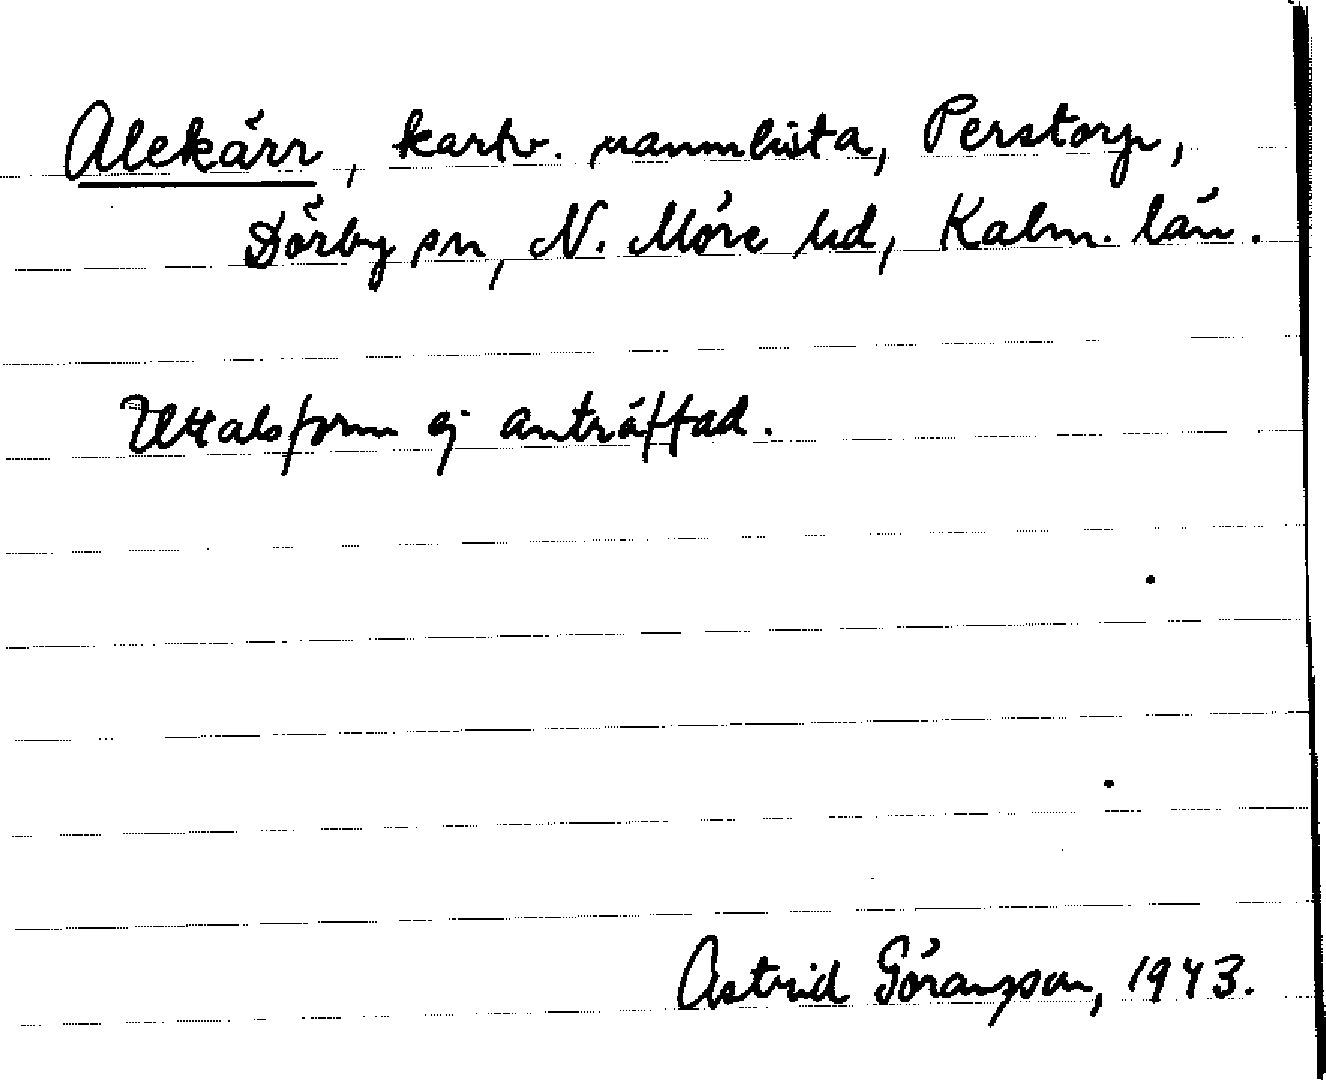 Alekärr, kartv. namnlista, Perstorp,
Dörby sn, N. Möre hd, Kalm. län.
Uttalsform ej anträffad.
Astrid Göranzson, 1943.